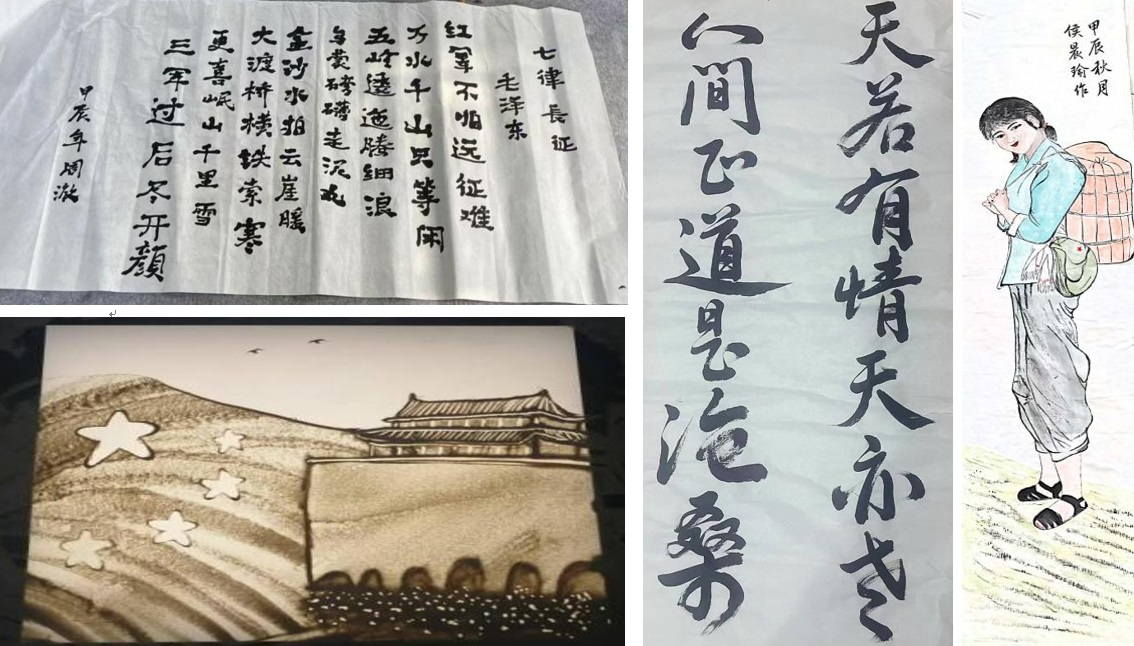 七律 長征
毛泽东
红军不怕远征难
万水千山只等闲
五岭逶迤腾细浪
乌蒙磅礴走泥丸
金沙水拍云崖暖
大渡桥横铁索寒
更喜岷山千里雪
三军过后尽开顔
甲辰年周
天若有情天亦老
人間正道是沧桑
甲辰秋月
侯晨瑜作